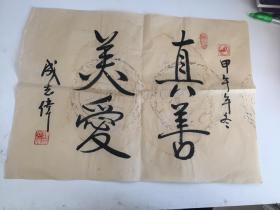 甲午年冬
真善
美愛
成志偉